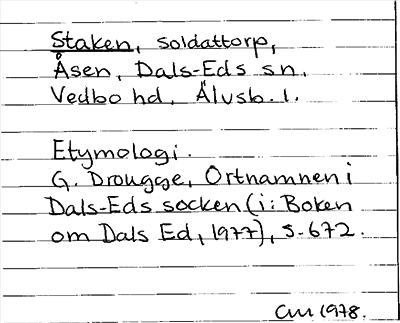 Staken, soldattorp,
Åsen, Dals-Eds sn.
Vedbo hd. Älvsb. l.
Etymologi.
G. Drougge, Ortnamnen i
Dals-Eds socken (i: Boken
om Dals Ed, 1977), s. 672.
CM 1978.